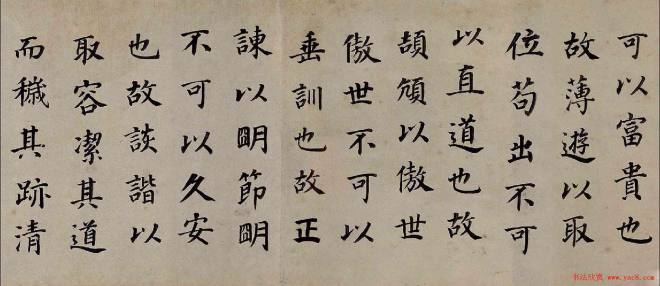 可以富貴也
故薄遊以取
位苟出不可
以直道也故
頡頏以傲世
傲世不可以
垂訓也故正
諫以明節明
不可以久安
也故談諧以
取容潔其道
而穢其跡清
书法欣赏 www.yac8.com